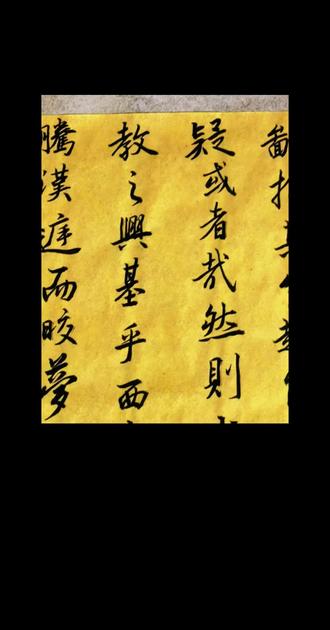 疑或者哉然則
教之興基乎西
騰漢庭而皎夢